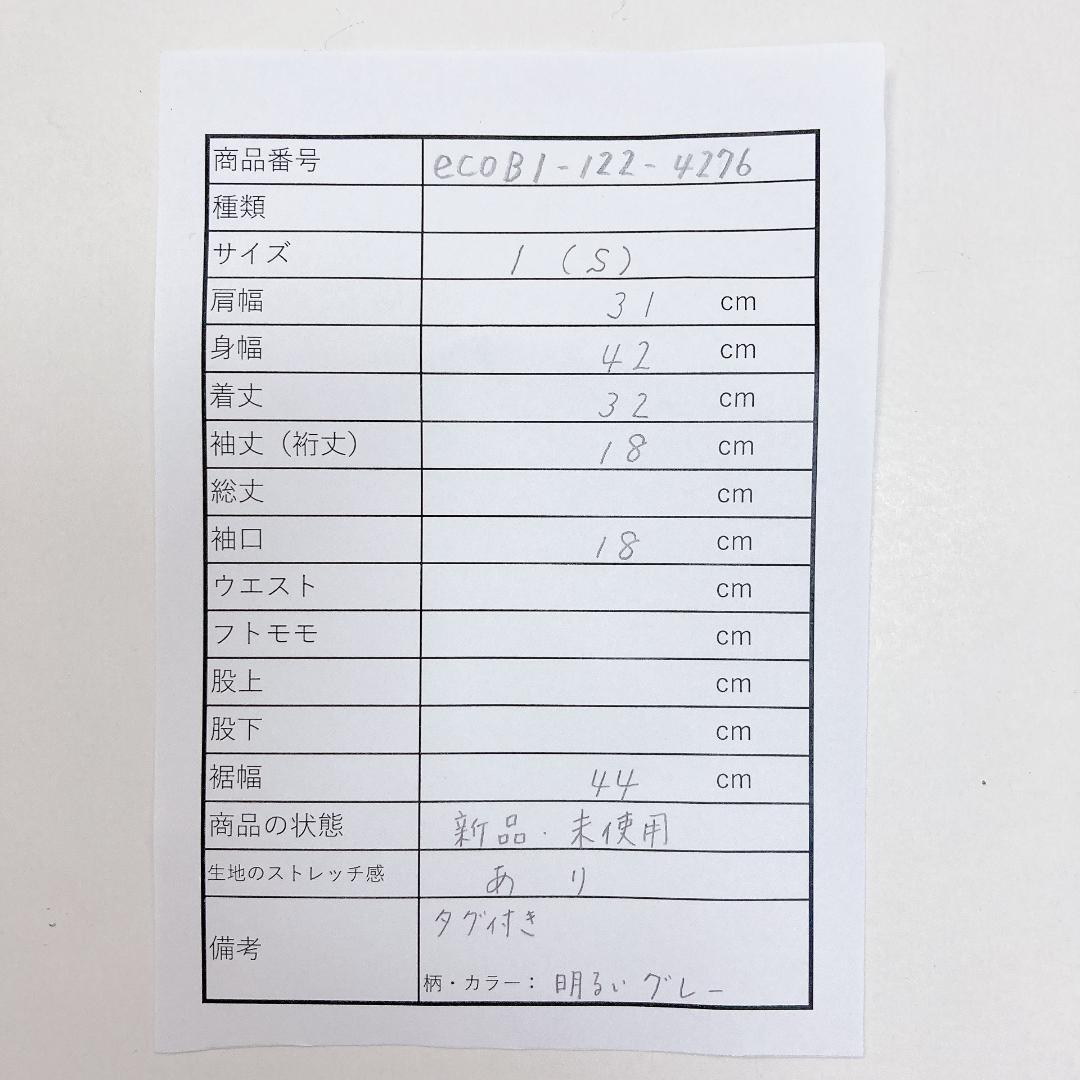 商品番号 ecoB1-122-4276
種類
サイズ 1 (S)
肩幅 31 cm
身幅 42 cm
着丈 32 cm
袖丈（裄丈） 18 cm
総丈 cm
袖口 18 cm
ウエスト cm
フトモモ cm
股上 cm
股下 cm
裾幅 44 cm
商品の状態 新品・未使用
生地のストレッチ感 あり
備考 タグ付き
柄・カラー： 明るいグレー